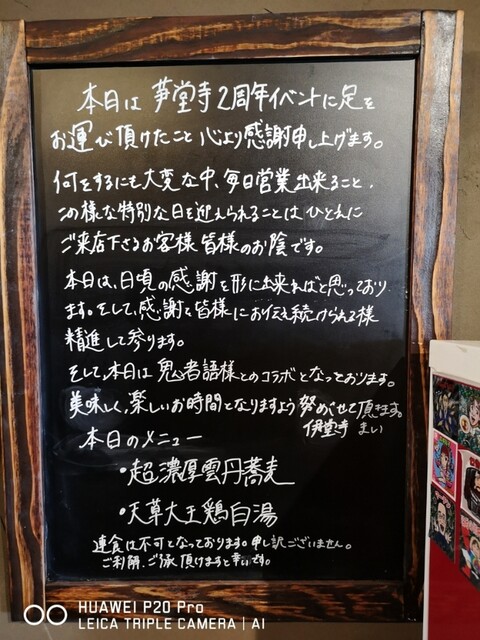 本日は 夢堂寺 2周年イベントに足を
お運び頂けたこと 心より感謝申し上げます。
何をするにも大変な中、毎日営業出来ること、
この様な特別な日を迎えられることは ひとえに
ご来店下さるお客様 皆様のお陰です。
本日は、日頃の感謝を形に出来ればと思っており
ます。そして、感謝を皆様にお伝え続けられる様
精進して参ります。
そして、本日は 鬼者語様とのコラボとなっております。
美味しく、楽しいお時間となりますよう 努めさせて頂きます。
伊堂寺 まい
本日のメニュー
・超濃厚雲丹蕎麦
・天草大王鶏白湯
連食は不可となっております。申し訳ございません。
ご利解、ご承頂けますと幸いです。
HUAWEI P20 Pro
LEICA TRIPLE CAMERA | AI